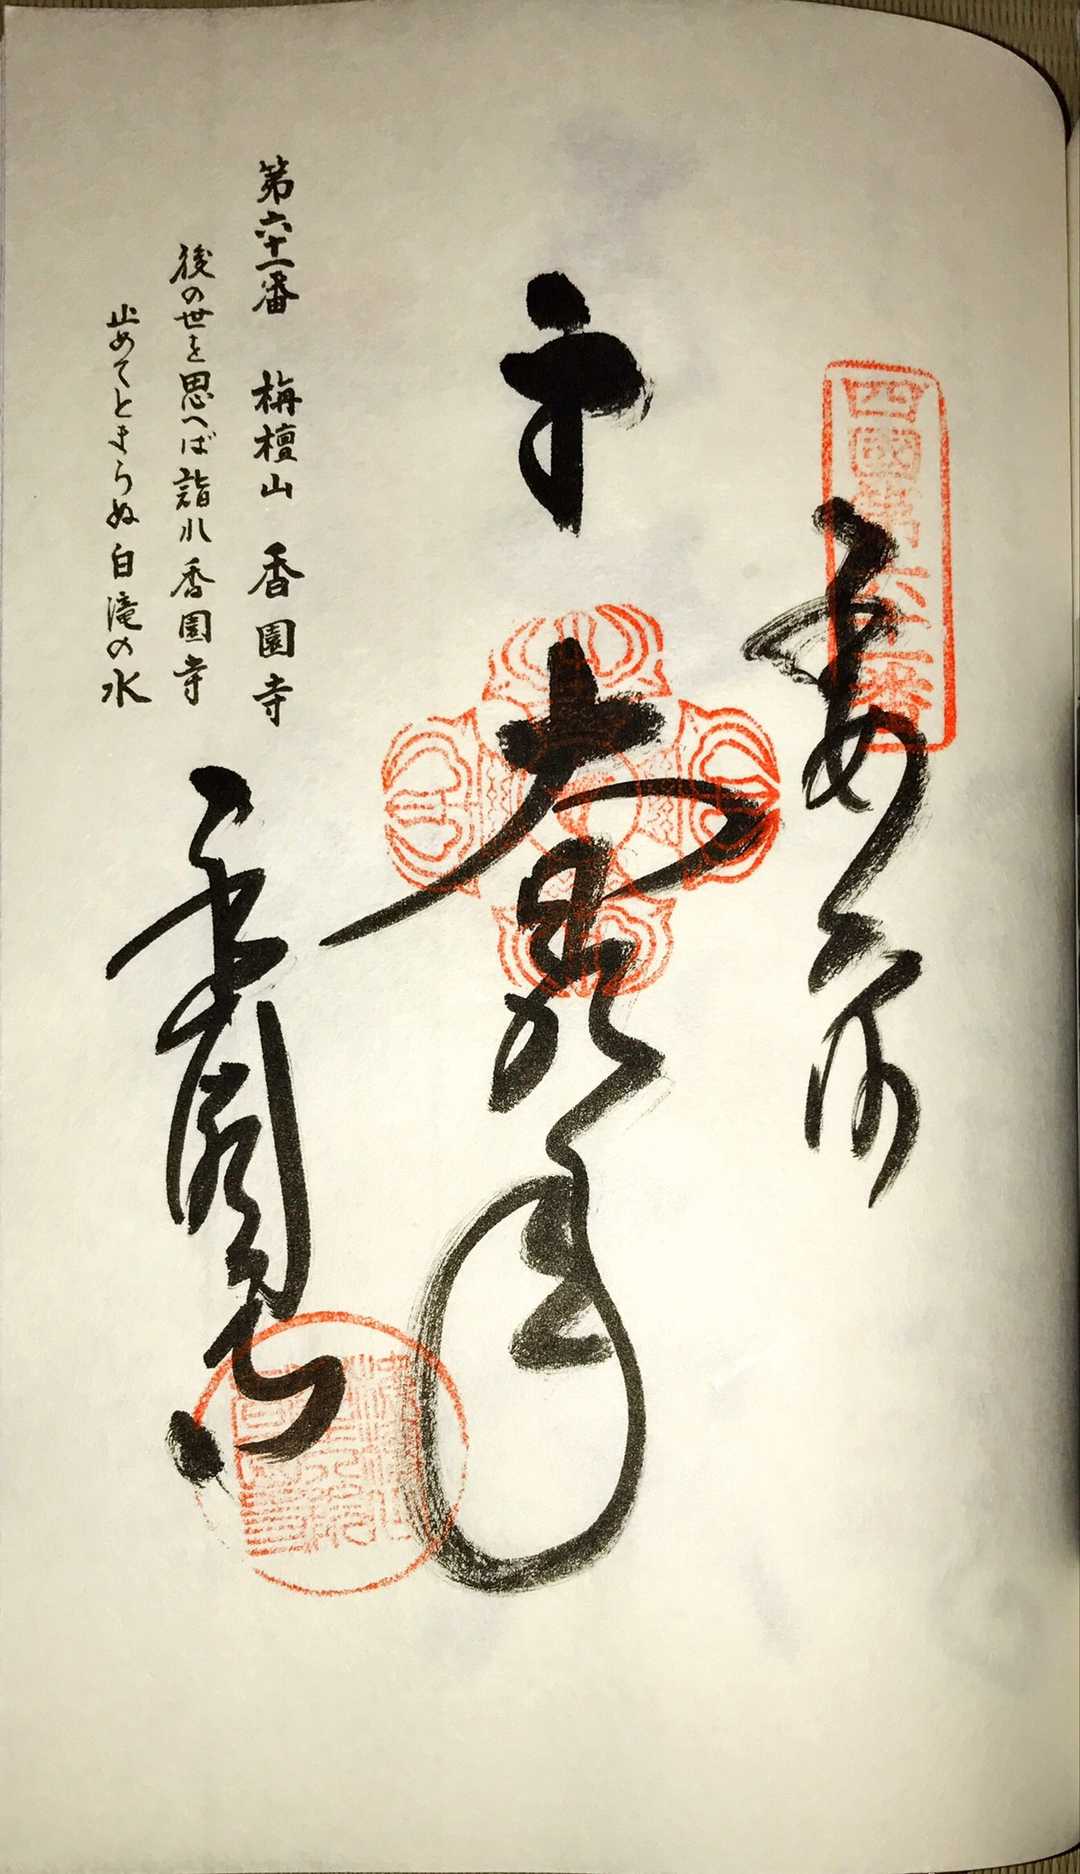 四國第六十一番
奉納
大日如来
第六十一番 栴檀山 香園寺
後の世を思へば詣れ香園寺
止めてとまらぬ白滝の水
香園寺